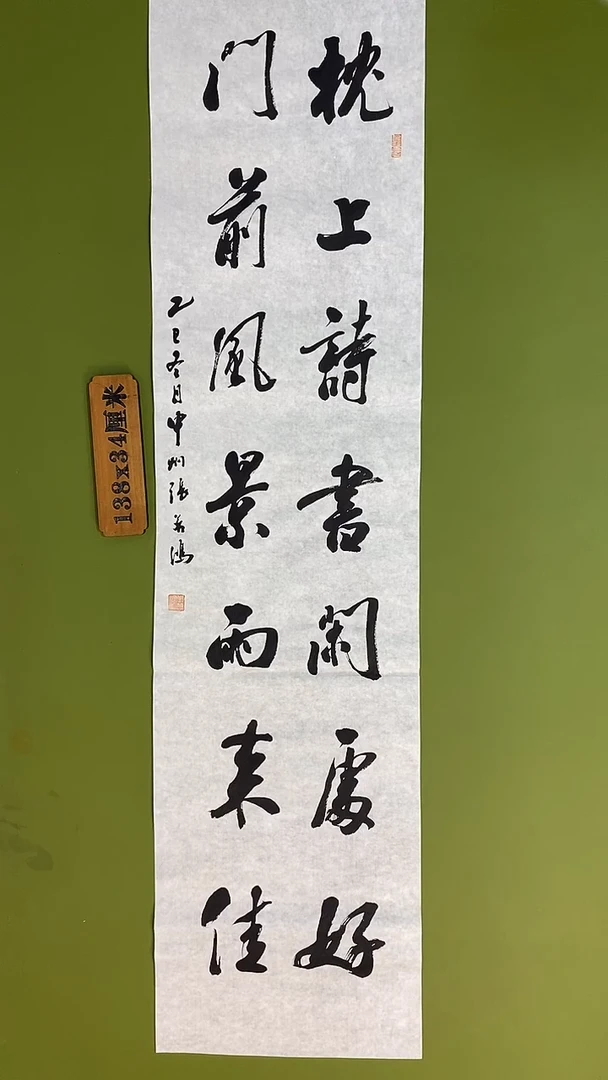 枕上詩書閑處好
门前風景雨来佳
乙巳冬月中州張若鴻
138x34厘米